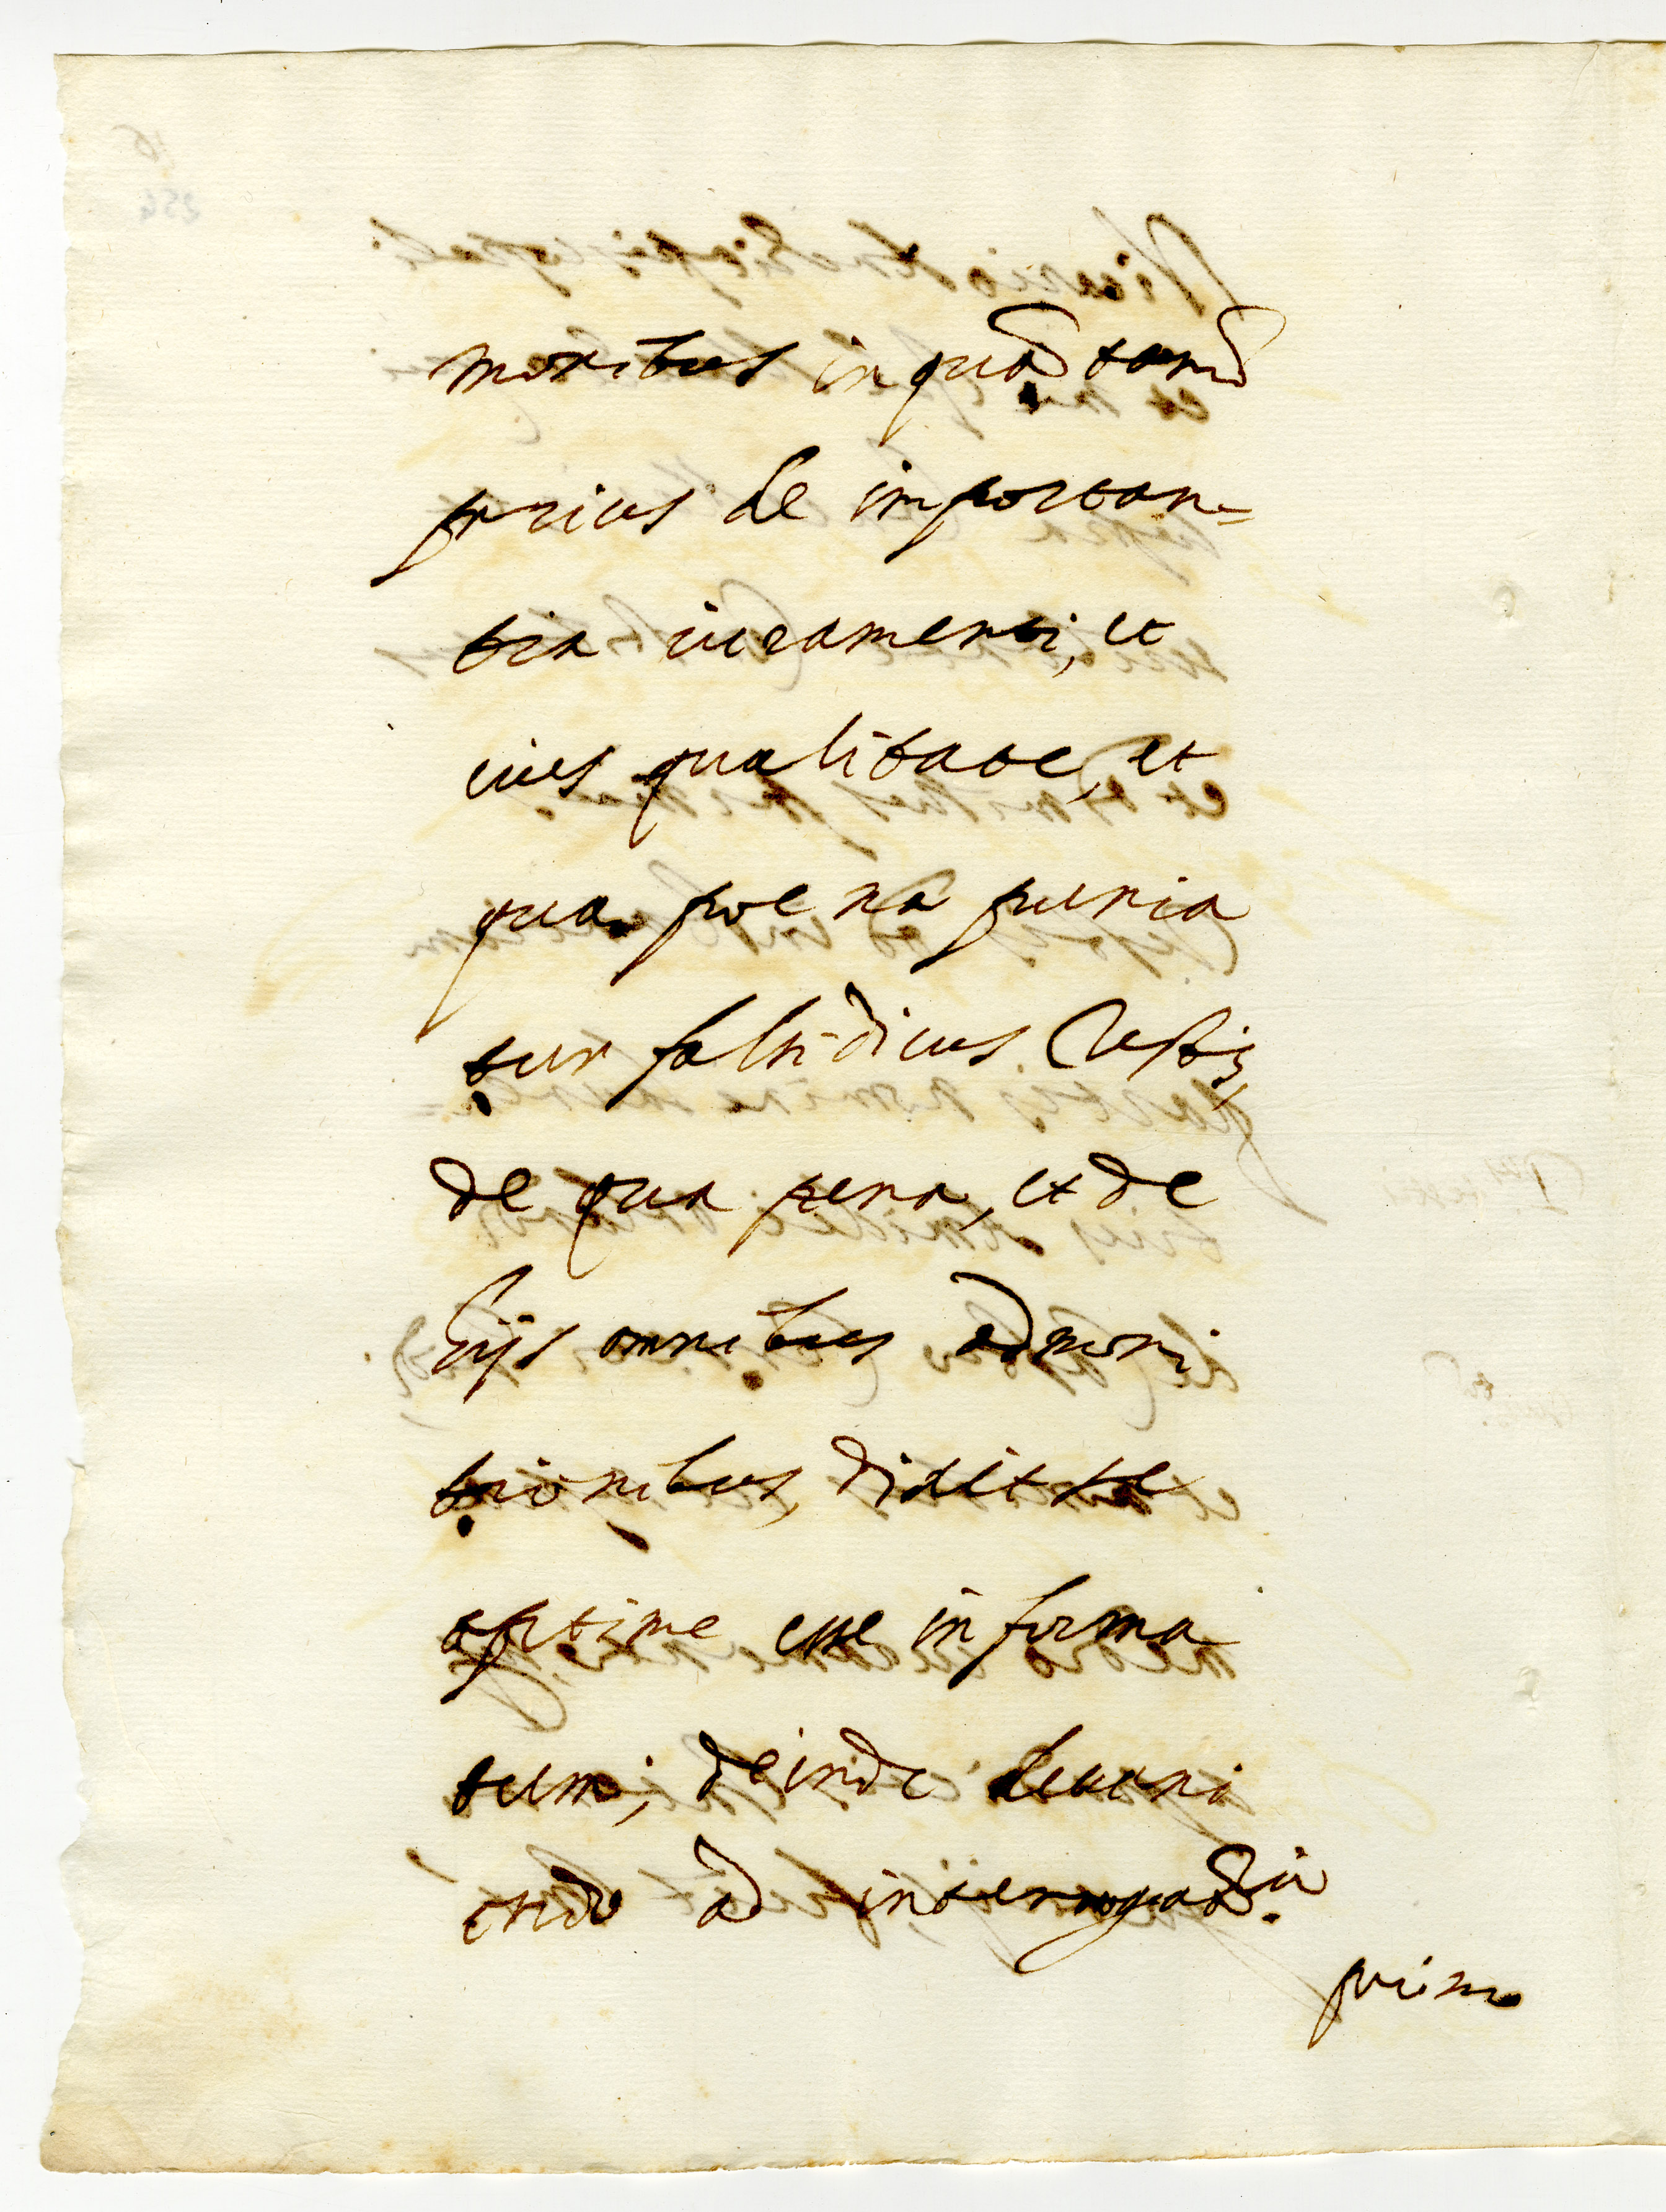 moribus inqua tamē
prius de importan=
tia iuramenti, et
eius qualitate, et
qua poena punia
tur falsidicus testis,
de qua pena, et de
hijs omnibus admoni
tionibus, dixit se
optime esse informa
tum; deinde deueni
endo ad interrogat.ia
primo